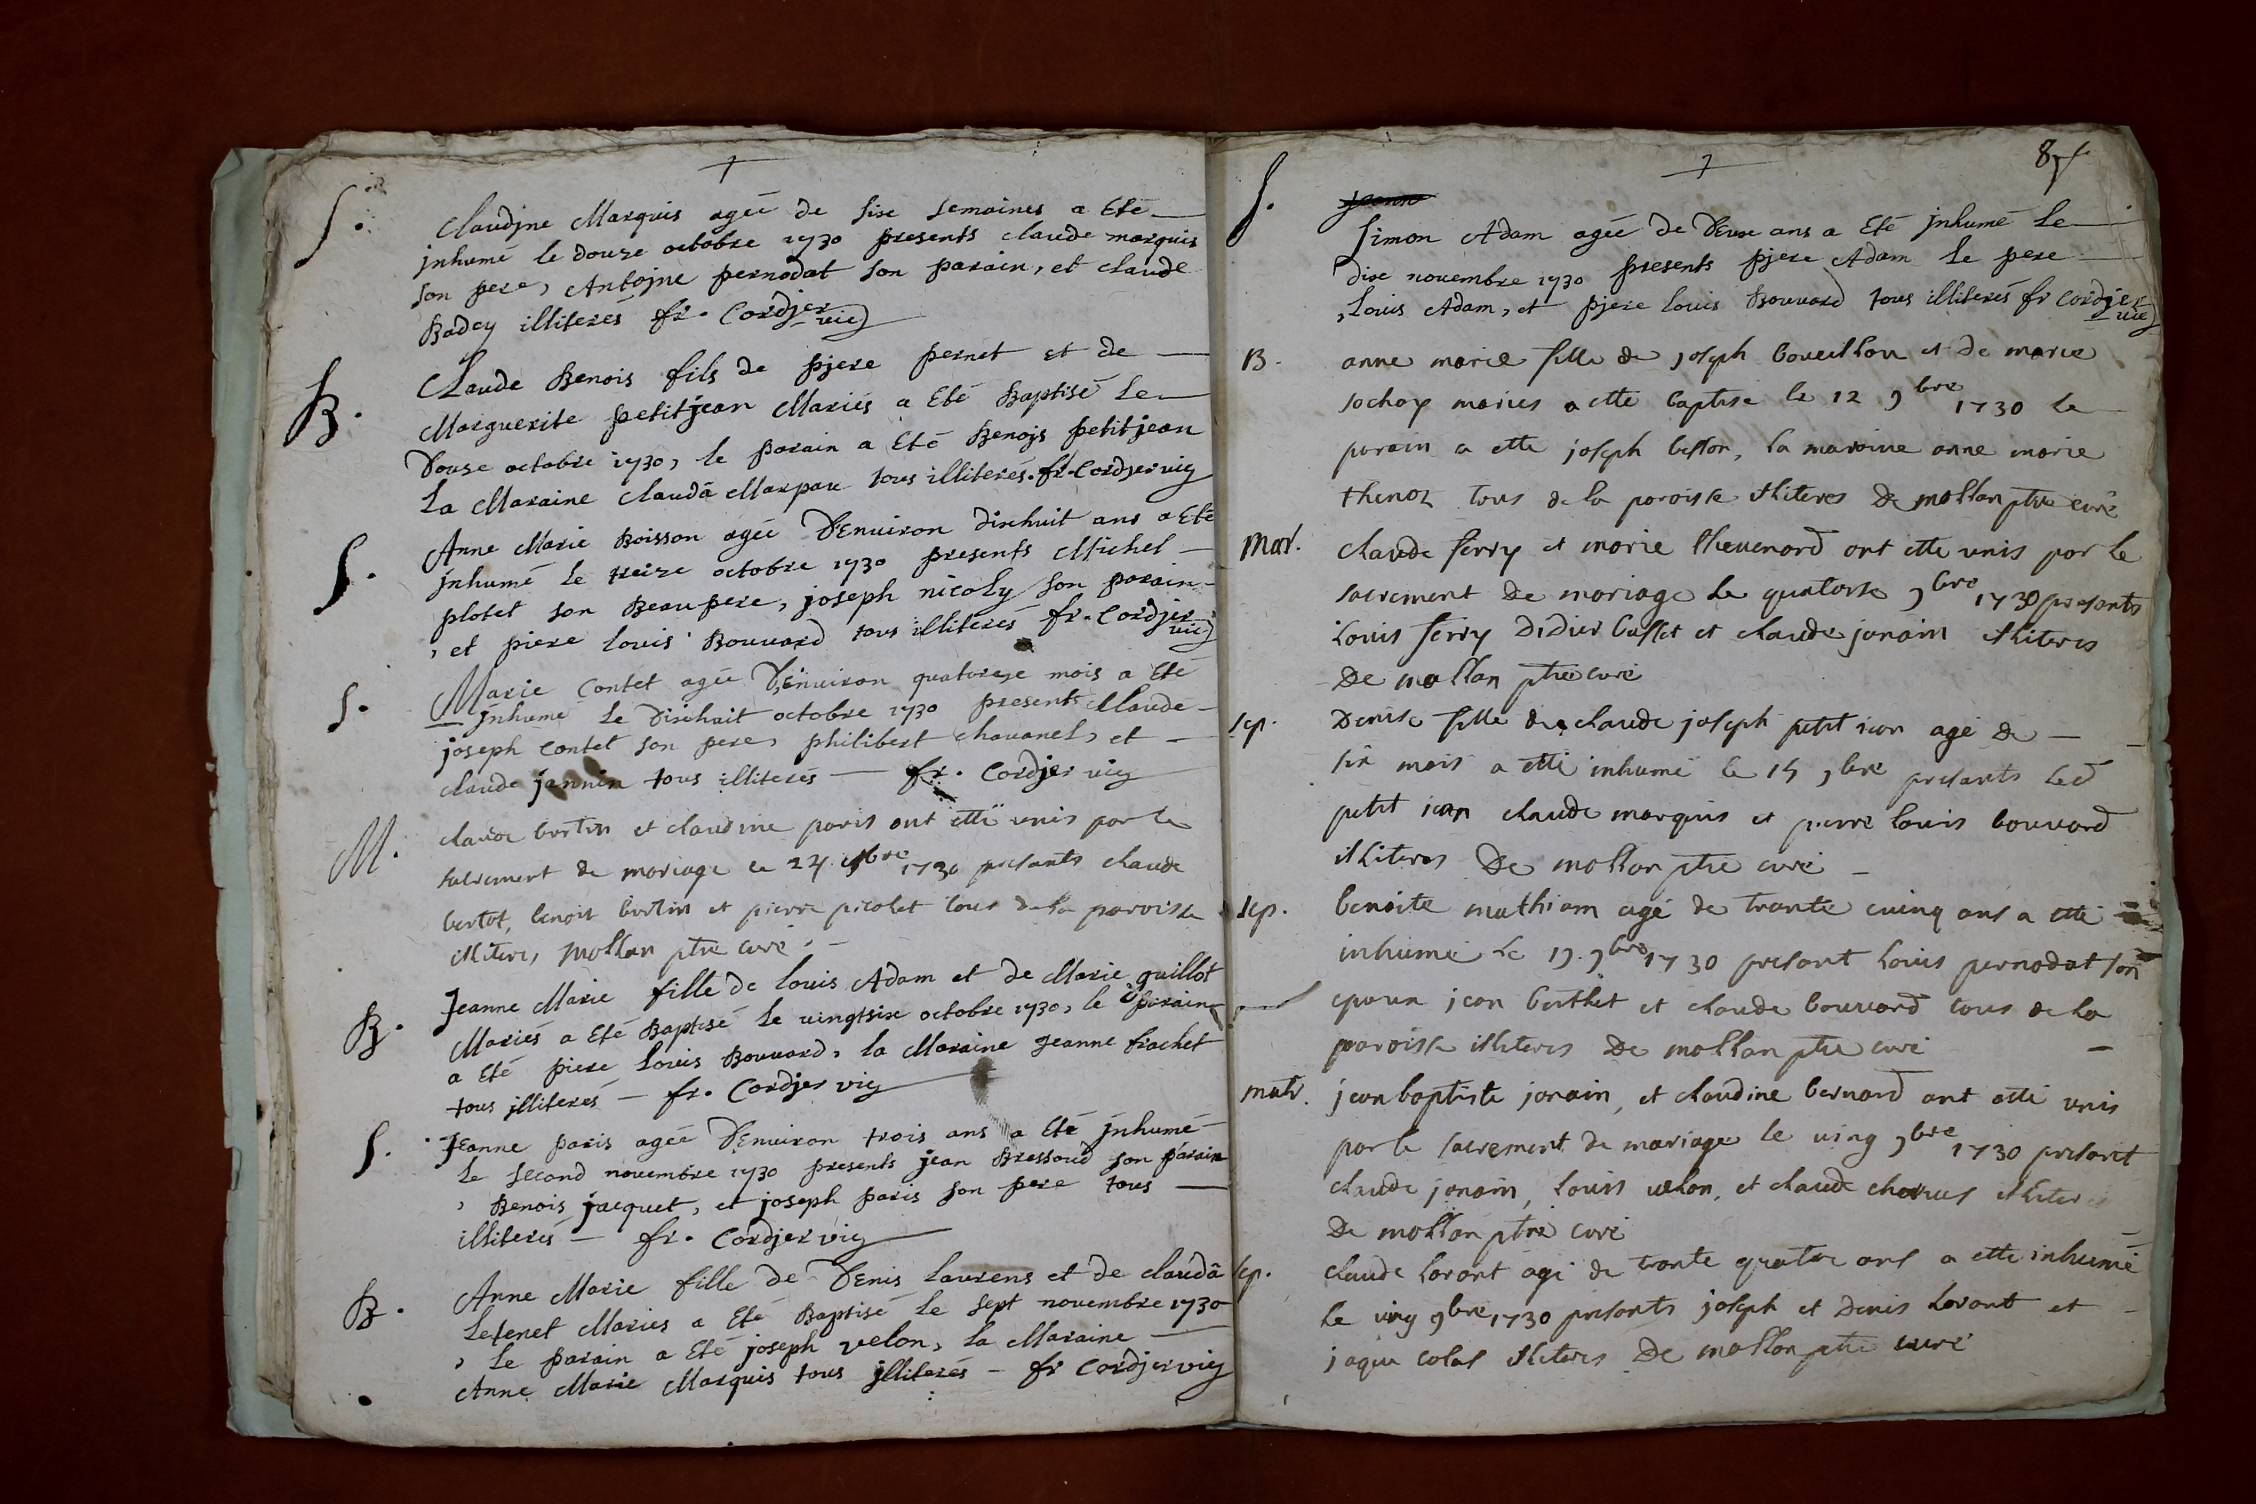 S. Claudjne Marquis agée de six semaines a Eté
jnhumé le douze octobre 1730 presents claude marquis
son pere, Antojne pernodat son parain, et claude
Badey illiterés fr. Cordjer vic
B. Claude Benois fils de pjere pernet et de
Marguerite petitjean Mariés a Eté Baptisé Le
Douze octobre 1730, le parain a Eté Benojs petitjean
La Maraine claudā Marpau tous illiterés. fr. Cordjer vic
S. Anne Marie Boisson agée D'Enuiron dixhuit ans a Eté
jnhumé Le treize octobre 1730 presents Michel
plotet son Beaupere, joseph nicoly son parain
, et piere Louis Bouuard tous illiterés fr. Cordjer vic
S. Marie Contet agée D'Enuiron quatorze mois a Eté
jnhumé Le Dixhuit octobre 1730 presents Claude
joseph Contet son pere, philibert chauanel, et
claude jannin tous illiterés fr. Cordjer vic
M. claude bertin et claudine paris ont etté unis par le
sacrement de mariage le 24 8bre 1730 presants claude
bertot, benoit bertin et pierre picolet tous de la paroisse
illiteres, Mollan ptre curé
B. Jeanne Marie fille de Louis Adam et de Marie guillot
Mariés a Eté Baptisé Le uingtsix octobre 1730, le parain
a Eté piere Louis Bouuard, la Maraine Jeanne frachet
tous jlliterés fr. Cordjer vic
S. Jeanne paris agée D'Enuiron trois ans a Eté jnhumé
Le second nouembre 1730 presents jean Bressoud son parain
, Benois jacquet, et joseph paris son pere tous
illiterés fr. Cordjer vic
B. Anne Marie fille de Denis Laurens et de claudā
Letenet Mariés a Eté Baptisé Le sept nouembre 1730
, Le parain a Eté joseph velon, La Maraine
Anne Marie Marquis tous jlliterés fr Cordjer vic
S.
Simon Adam agée de Deux ans a Eté jnhumé Le
dix nouembre 1730 presents pjere Adam Le pere
, Louis Adam, et pjere Louis Bouuard tous illiterés fr Cordjer vic
B. anne marie fille de joseph et de marie
sochay maries a etté baptisé le 12 9bre 1730 le
parain a etté joseph beston, la maraine anne marie
thenoz tous de la paroisse illiteres De mollan ptre curé
Mar. claude ferry et marie theuenard ont etté unis par le
sacrement De mariage Le quatorse 9bre 1730 presants
Louis ferry Didier busset et claude janain illiteres
De mollan ptre curé
sep. Denise fille de claude joseph petit jean agé de
six mois a etté inhumé le 15 9bre presants led
petit jean claude marquis et pierre louis bouuard
illiteres De mollan ptre curé
sep. benoite mathiam agé de trante cuinq ans a etté
inhumé le 19. 9bre 1730 presant Louis pernodat son
epoux jean berthet et claude bouuard tous de la
paroisse illiteres De mollan ptre curé
matr. jean baptiste janain, et claudine bernard ont etté unis
par le sacrement de mariage le uing 9bre 1730 presant
claude janain, louis uelon, et claude illiter
De mollan ptre curé
sep. claude Lorant agé de trante quatre ans a etté inhumé
le uing 9bre 1730 presants joseph et Denis Lorant et
jaque colas illiteres De mollan ptre curé